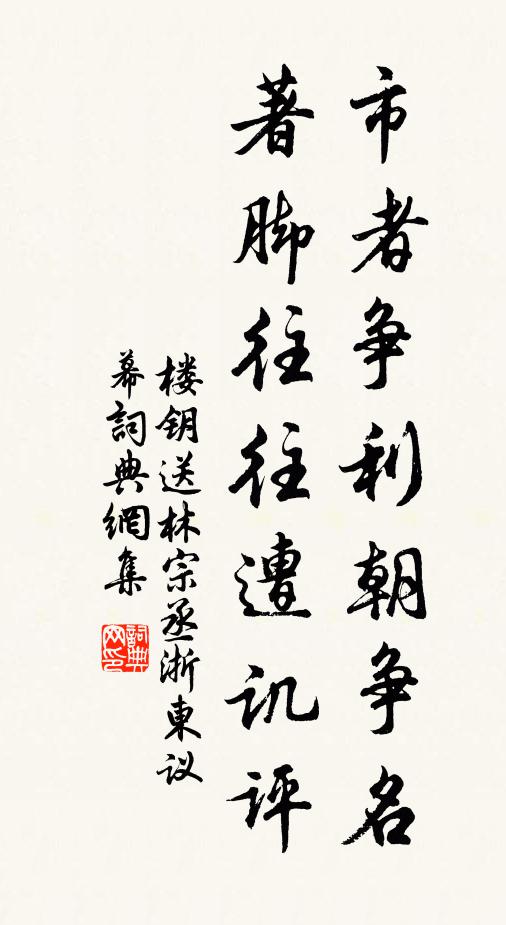 市者争利朝争名
著脚往往遭讥评
楼钥送林宗丞浙東议
幕詞典網集
詞典网印